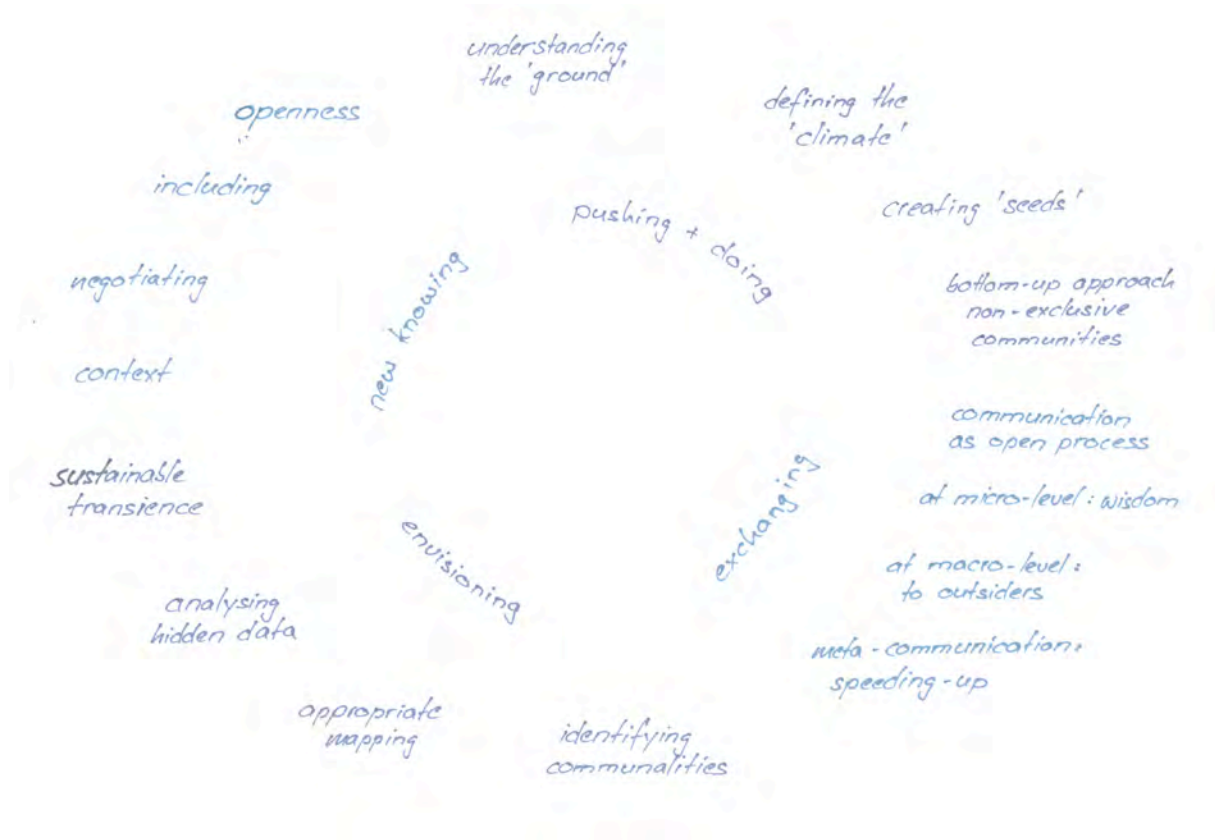 understanding
the 'ground'
defining the
'climate'
creating 'seeds'
bottom-up approach
non-exclusive
communities
communication
as open process
at micro-level: wisdom
at macro-level:
to outsiders
meta-communication:
speeding-up
identifying
communalities
appropriate
mapping
analysing
hidden data
sustainable
transience
context
negotiating
including
openness
pushing + doing
exchanging
envisioning
new knowing